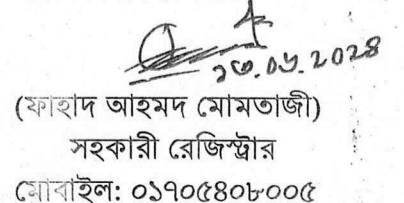 ২৩.০১.২০২৪
(ফাহাদ আহমদ মোমতাজী)
সহকারী রেজিস্ট্রার
মোবাইল: ০১৭০৫৪০৮০০৫